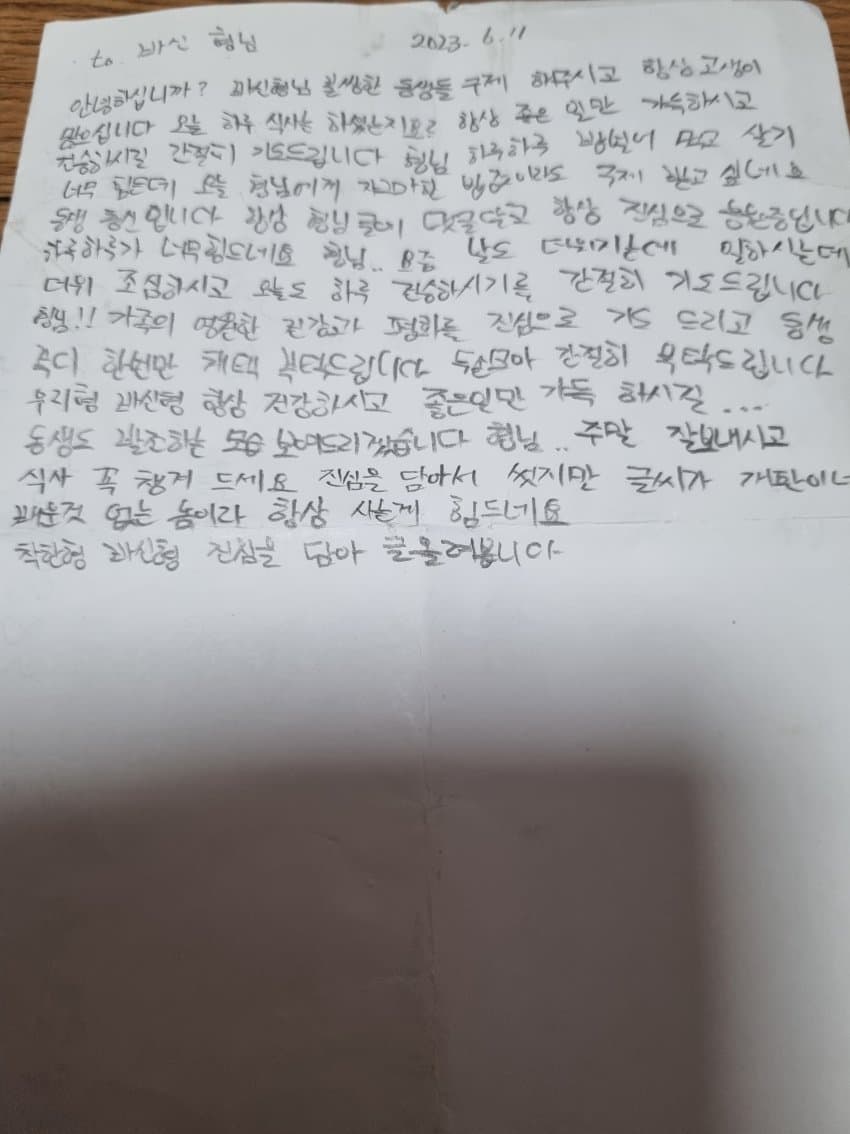 to. 바신 형님 2023. 6. 11
안녕하십니까? 콰신형님 불쌍한 동생들 구제 해주시고 항상 고생이
많으십니다 오늘 하루 식사는 하셨는지요? 항상 좋은 일만 가득하시고
건승하시길 간절히 기도드립니다 형님 하루하루 먹고 살기
너무 힘든데 오늘 형님에게 자그마한 밥값이라도 구제 받고 싶네요
동생 입니다 항상 형님 글에 댓글달고 항상 진심으로 응원중입니다
하루하루가 너무힘드네요 형님.. 요즘 날도 더워지는데 일하시는데
더위 조심하시고 오늘도 하루 건승하시기를 간절히 기도드립니다
형님!! 가족의 영원한 건강과 평화를 진심으로 기도 드리고 동생
국디 한번만 채택 부탁드립니다 두손모아 간절히 부탁드립니다
우리형 콰신형 항상 건강하시고 좋은일만 가득 하시길 ...
동생도 발전하는 모습 보여드리겠습니다 형님.. 주말 잘보내시고
식사 꼭 챙겨 드세요 진심을 담아서 썼지만 글씨가 개판이네
배운것 없는 놈이라 항상 사는게 힘드네요
착한형 콰신형 진심을 담아 글올려봅니다